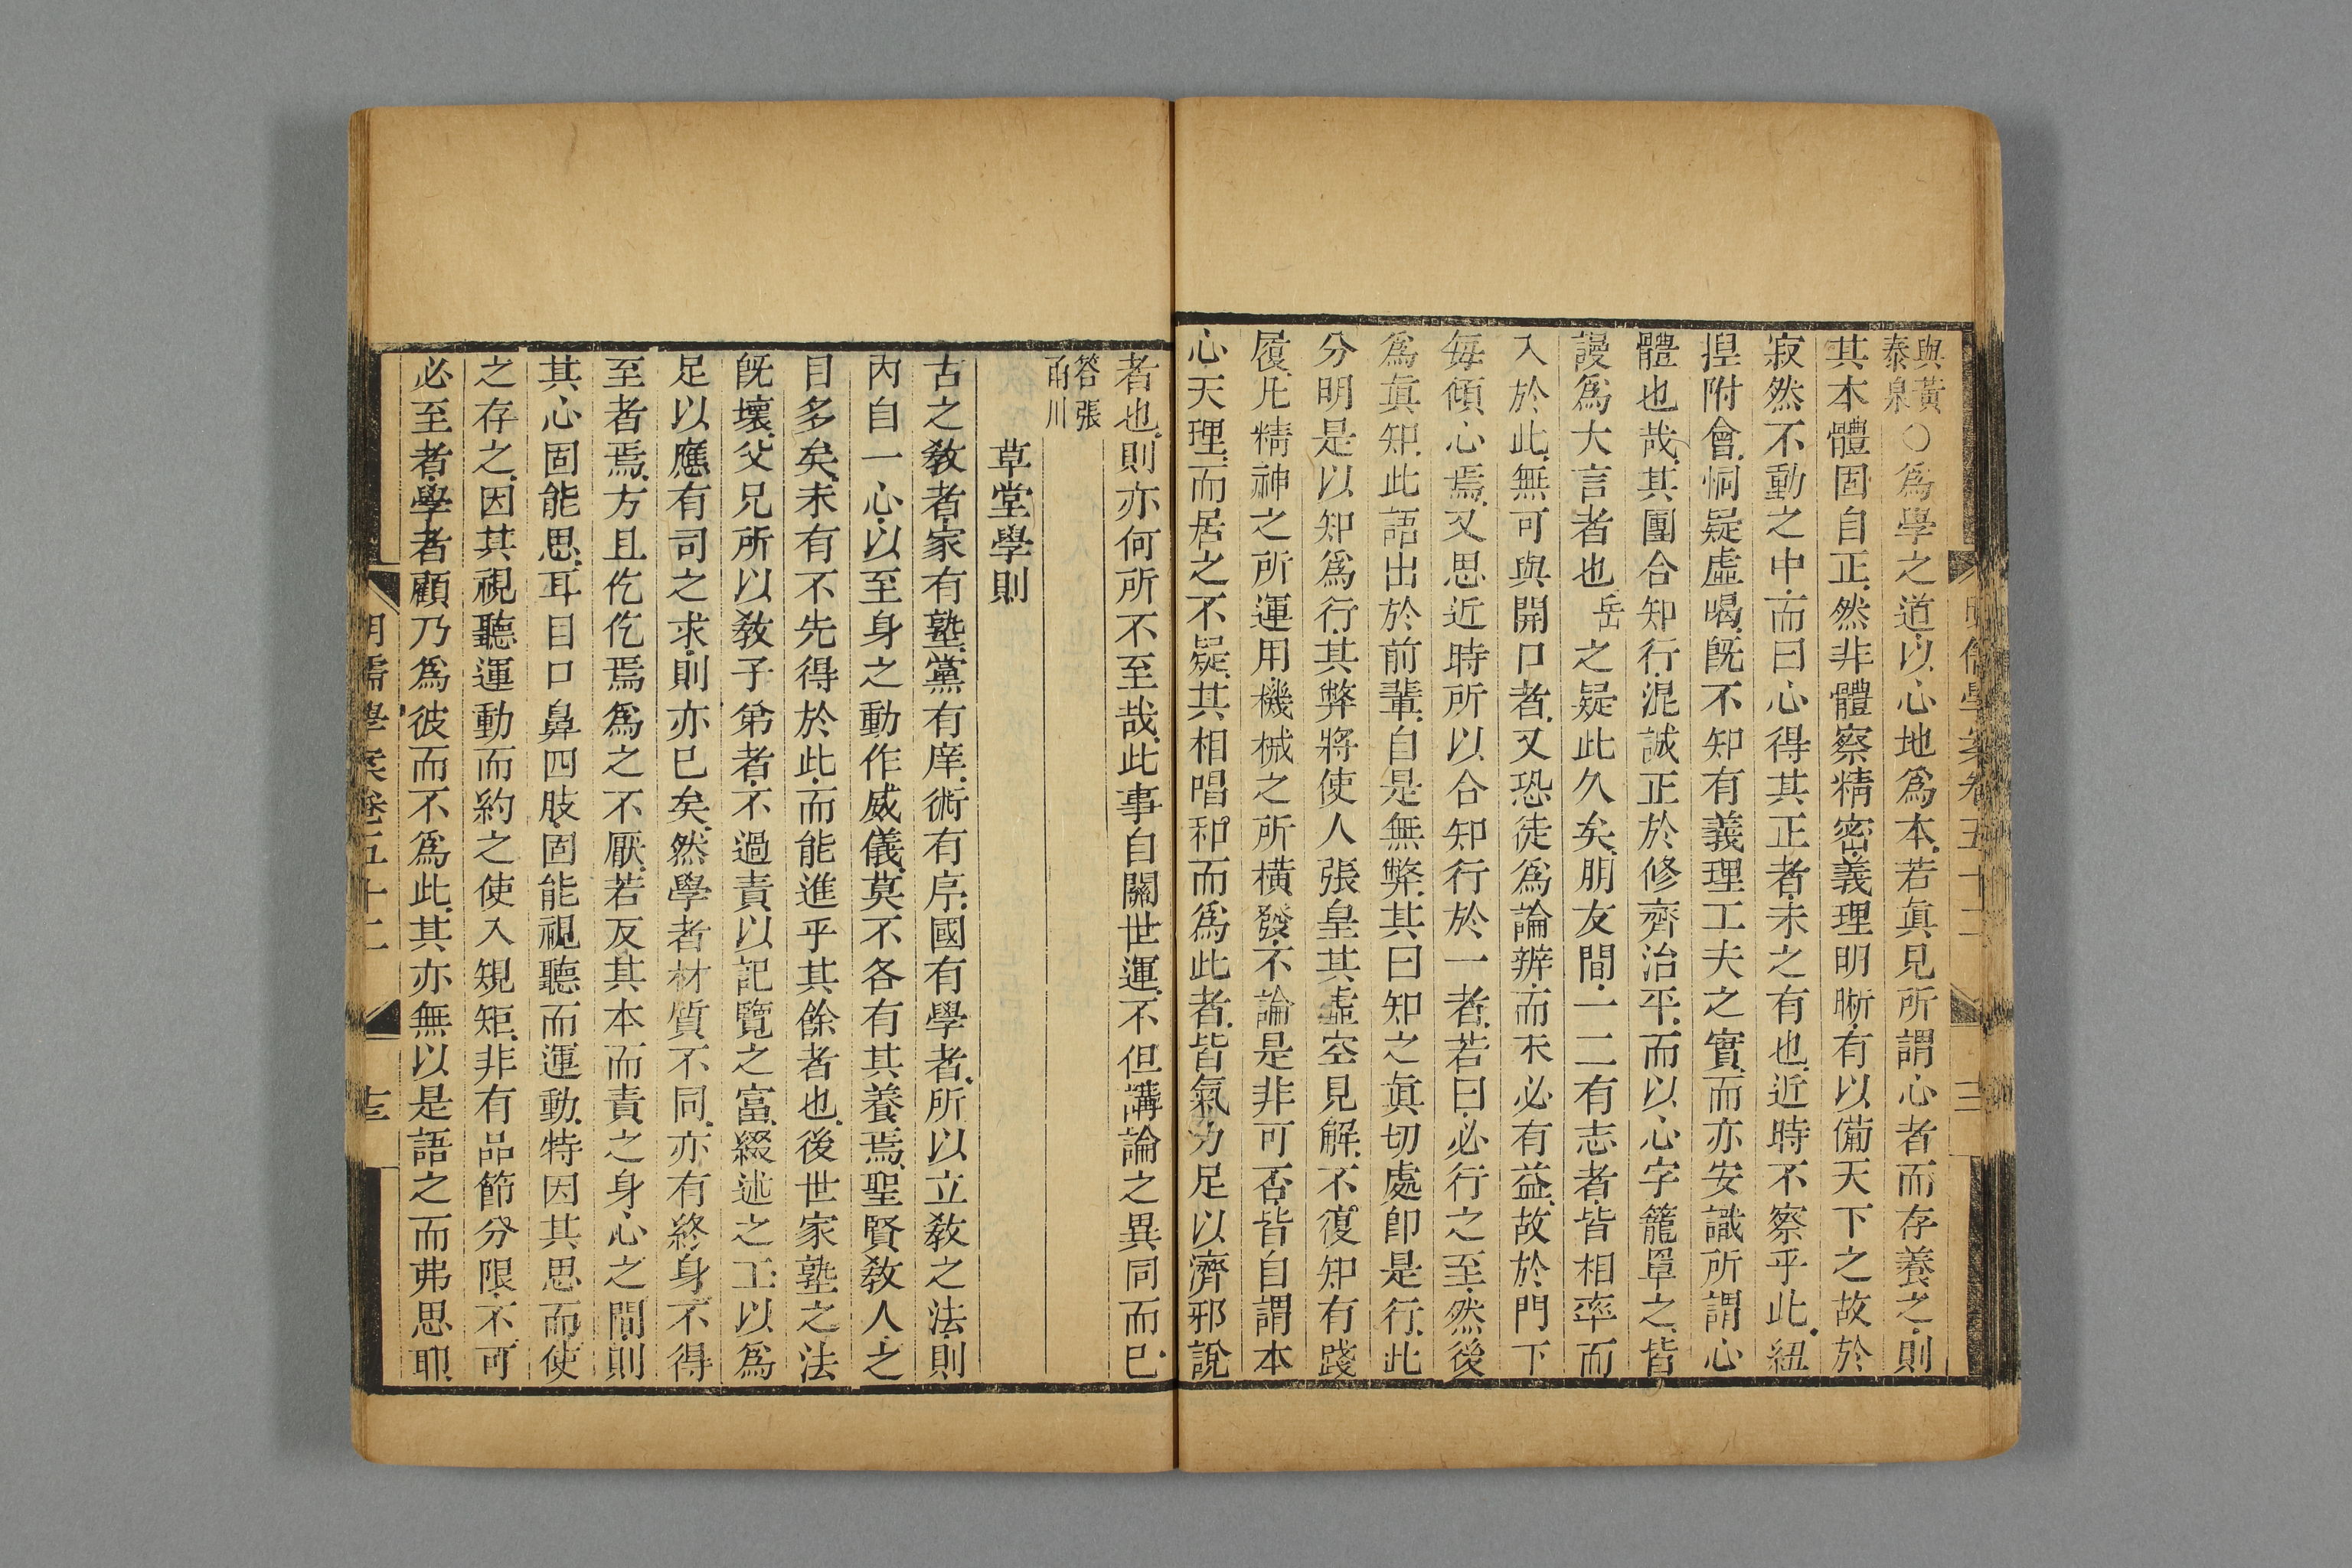 明儒學案卷五十二
三
與黃
泰泉
○爲學之道以心地爲本若眞見所謂心者而存養之則
其本體固自正然非體察精密義理明晰有以備天下之故於
寂然不動之中而曰心得其正者未之有也近時不察乎此紐
揑附會恫疑虛喝旣不知有義理工夫之實而亦安識所謂心
體也哉其團合知行混誠正於修齊治平而以心字籠罩之皆
謾爲大言者也岳之疑此久矣朋友間一二有志者皆相率而
入於此無可與開口者又恐徒爲論辨而未必有益故於門下
每傾心焉又思近時所以合知行於一者若曰必行之至然後
爲眞知此語出於前輩自是無弊其曰知之眞切處卽是行此
分明是以知爲行其弊將使人張皇其虛空見解不復知有踐
履凡精神之所運用機械之所橫發不論是非可否皆自謂本
心天理而居之不疑其相唱和而爲此者皆氣力足以濟邪說
者也則亦何所不至哉此事自關世運不但講論之異同而已
答張
甬川
草堂學則
古之敎者家有塾黨有庠術有序國有學者所以立敎之法則
內自一心以至身之動作威儀莫不各有其養焉聖賢敎人之
目多矣未有不先得於此而能進乎其餘者也後世家塾之法
旣壞父兄所以敎子弟者不過責以記覽之富綴述之工以爲
足以應有司之求則亦已矣然學者材質不同亦有終身不得
至者焉方且仡仡焉爲之不厭若反其本而責之身心之間則
其心固能思耳目口鼻四肢固能視聽而運動特因其思而使
之存之因其視聽運動而約之使入規矩非有品節分限不可
必至者學者顧乃爲彼而不爲此其亦無以是語之而弗思耶
明儒學案卷五十二